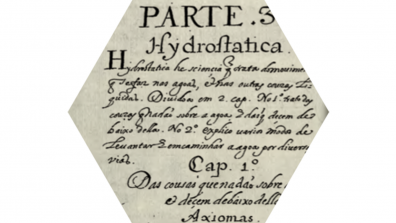 PARTE .3
Hydrostatica.
Hydrostatica he sciencia q̃ trata
nas aguas, e nas outras couzas li
quidas. Dividese em 2. cap. No 1º trata das
couzas q̃ nadaõ sobre a agua e das q̃ decem de
baixo della. No 2º. explico varia moda de
Levantar e encaminhar a agua por diversas
vias.
Cap. 1º.
Das cousas que nadaõ sobre
e decem debaixo della
Axiomas.